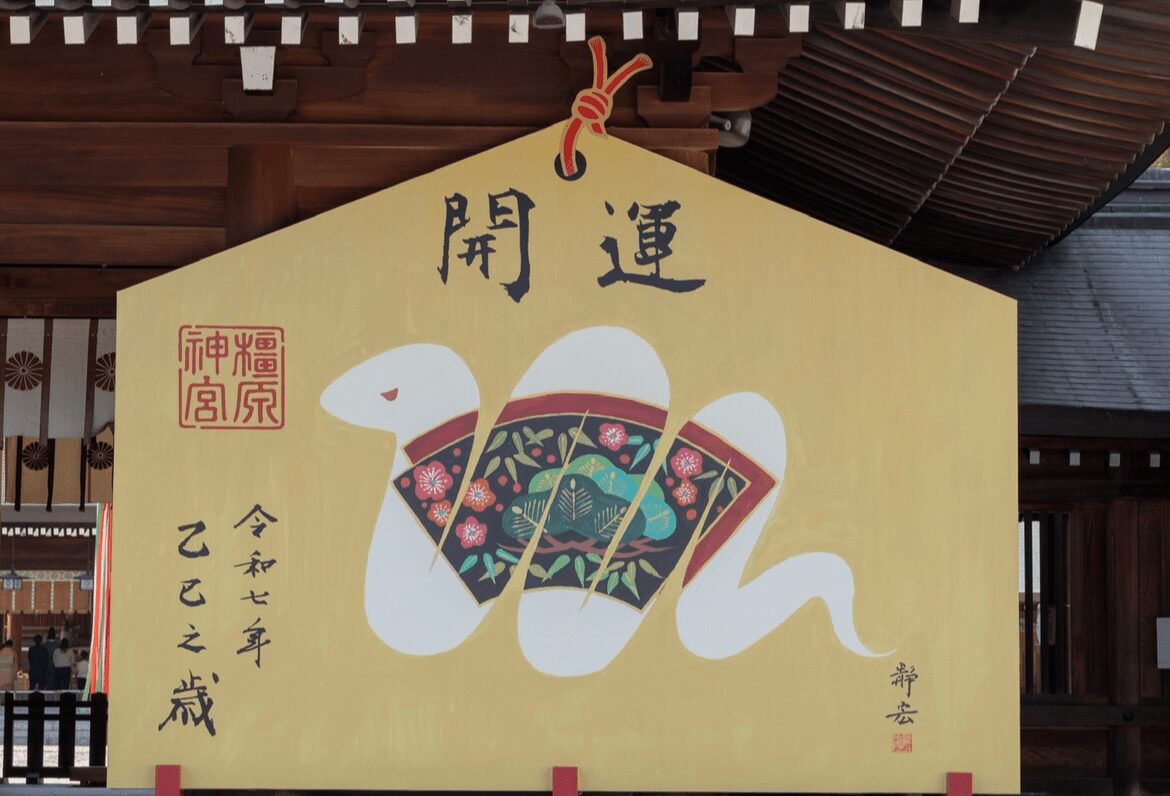 開運
橿原
神宮
令和七年
乙巳之歳
靜宏